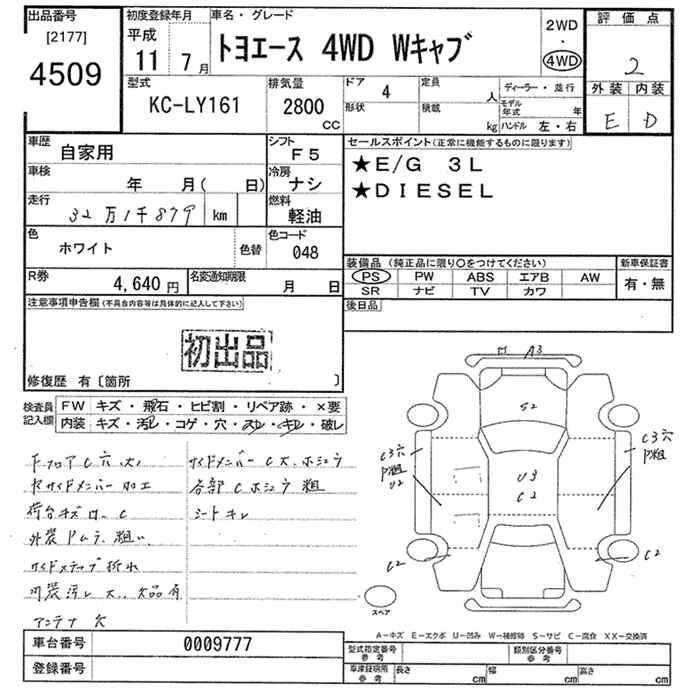 出品番号
[2177]
4509
初度登録年月
平成
11年 7月
車名・グレード
トヨエース 4WD Wキャブ
2WD
・
4WD
評価点
2
外装 内装
E D
型式
KC-LY161
排気量
2800
CC
ドア
4
形状
定員
人
積載
kg
ディーラー・並行
モデル年式 年
ハンドル 左・右
車歴
自家用
シフト
F5
車検
年 月( 日)
冷房
ナシ
走行
32万1千879 km
燃料
軽油
色
ホワイト
色替
色コード
048
R券
4,640円
名変通知期限
月 日
セールスポイント(正常に機能するものに限ります)
★E/G 3L
★DIESEL
装備品 (純正品に限り○をつけてください)
PS PW ABS エアB AW
SR ナビ TV カワ
新車保証書
有・無
後日品
注意事項申告欄(不具合内容等は具体的に記入して下さい)
初出品
修復歴 有〔箇所 〕
検査員記入欄
FW キズ・飛石・ヒビ割・リペア跡・×要
内装 キズ・汚レ・コゲ・穴・スレ・キレ・破レ
下フロアC穴、大
サイドメンバーC大、ホシュウ
サイドメンバー加工
各部Cホシュウ粗
荷台キズ
シートキレ
外装Pムラ、粗い
サイドステップ折れ
内装汚レ大、欠品有
アンテナ欠
A3
S2
U3
C2
C3穴
P粗
U2
C3穴
P粗
C2
C2
スペア
A−キズ E−エクボ U−凹み W−補修跡 S−サビ C−腐食 XX−交換済
車台番号
0009777
登録番号
型式指定番号
参考
類別区分番号
参考
車庫証明用
参考
長さ cm
幅 cm
高さ cm